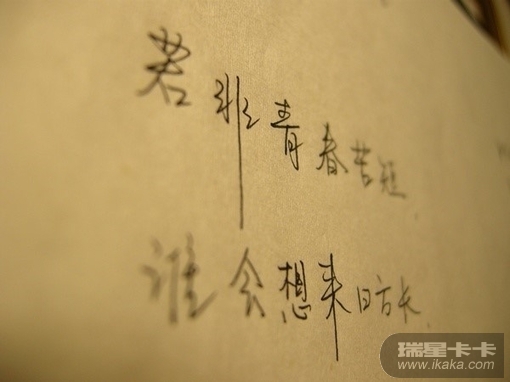 若非青春苦短
谁会想来日方长
瑞星卡卡
www.ikaka.com